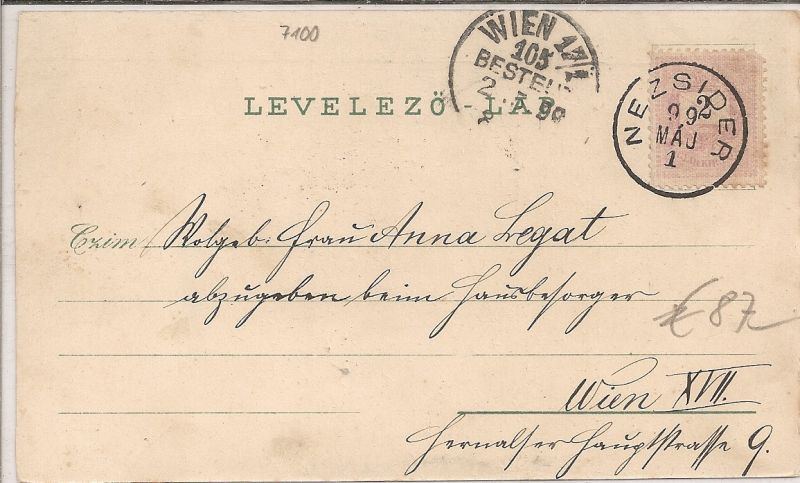 7100
WIEN 17/1
105
BESTELLT
2. 5. 99
NEZSIDER
99
MÁJ
1
LEVELEZŐ-LAP
Czim Wolgeb. Frau Anna Legat
abzugeben beim Hausbesorger
€ 87
Wien XVII.
Hernalser Hauptstrasse 9.